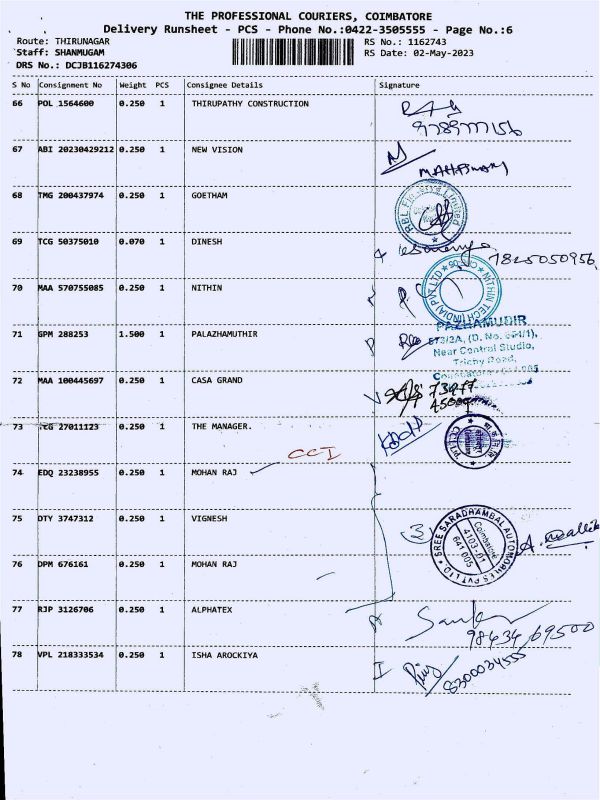 THE PROFESSIONAL COURIERS, COIMBATORE
Delivery Runsheet - PCS - Phone No.:0422-3505555 - Page No.:6
Route: THIRUNAGAR RS No.: 1162743
Staff: SHANMUGAM RS Date: 02-May-2023
DRS No.: DCJB116274306
S No Consignment No Weight PCS Consignee Details Signature
66 POL 1564600 0.250 1 THIRUPATHY CONSTRUCTION
67 ABI 20230429212 0.250 1 NEW VISION
68 TMG 200437974 0.250 1 GOETHAM
69 TCG 50375010 0.070 1 DINESH
7825050956
70 MAA 570755085 0.250 1 NITHIN
NITHIN TECH (INDIA) PVT LTD
71 GPM 288253 1.500 1 PALAZHAMUTHIR
PAZHAMUDIR
Near Central Studio,
Trichy Road,
72 MAA 100445697 0.250 1 CASA GRAND
73977
73 TCG 27011123 0.250 1 THE MANAGER.
CCI
74 EDQ 23238955 0.250 1 MOHAN RAJ
75 DTY 3747312 0.250 1 VIGNESH
3
SREE SARADHAMBAL AUTOMOBILES PVT LTD
Coimbatore
641 005
76 DPM 676161 0.250 1 MOHAN RAJ
77 RJP 3126706 0.250 1 ALPHATEX
98434 69500
78 VPL 218333534 0.250 1 ISHA AROCKIYA
8300034555